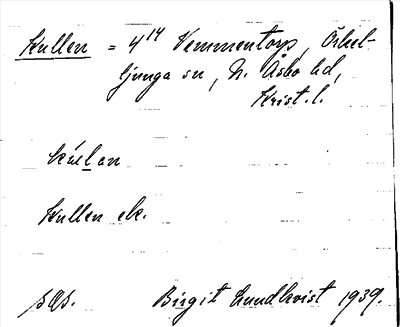 Kullen = 4¹⁴ Vemmentorp, Örkel-
ljunga sn, N. Åsbo hd,
Krist. l.
Kullen ek.
Birgit Lundkvist 1939.